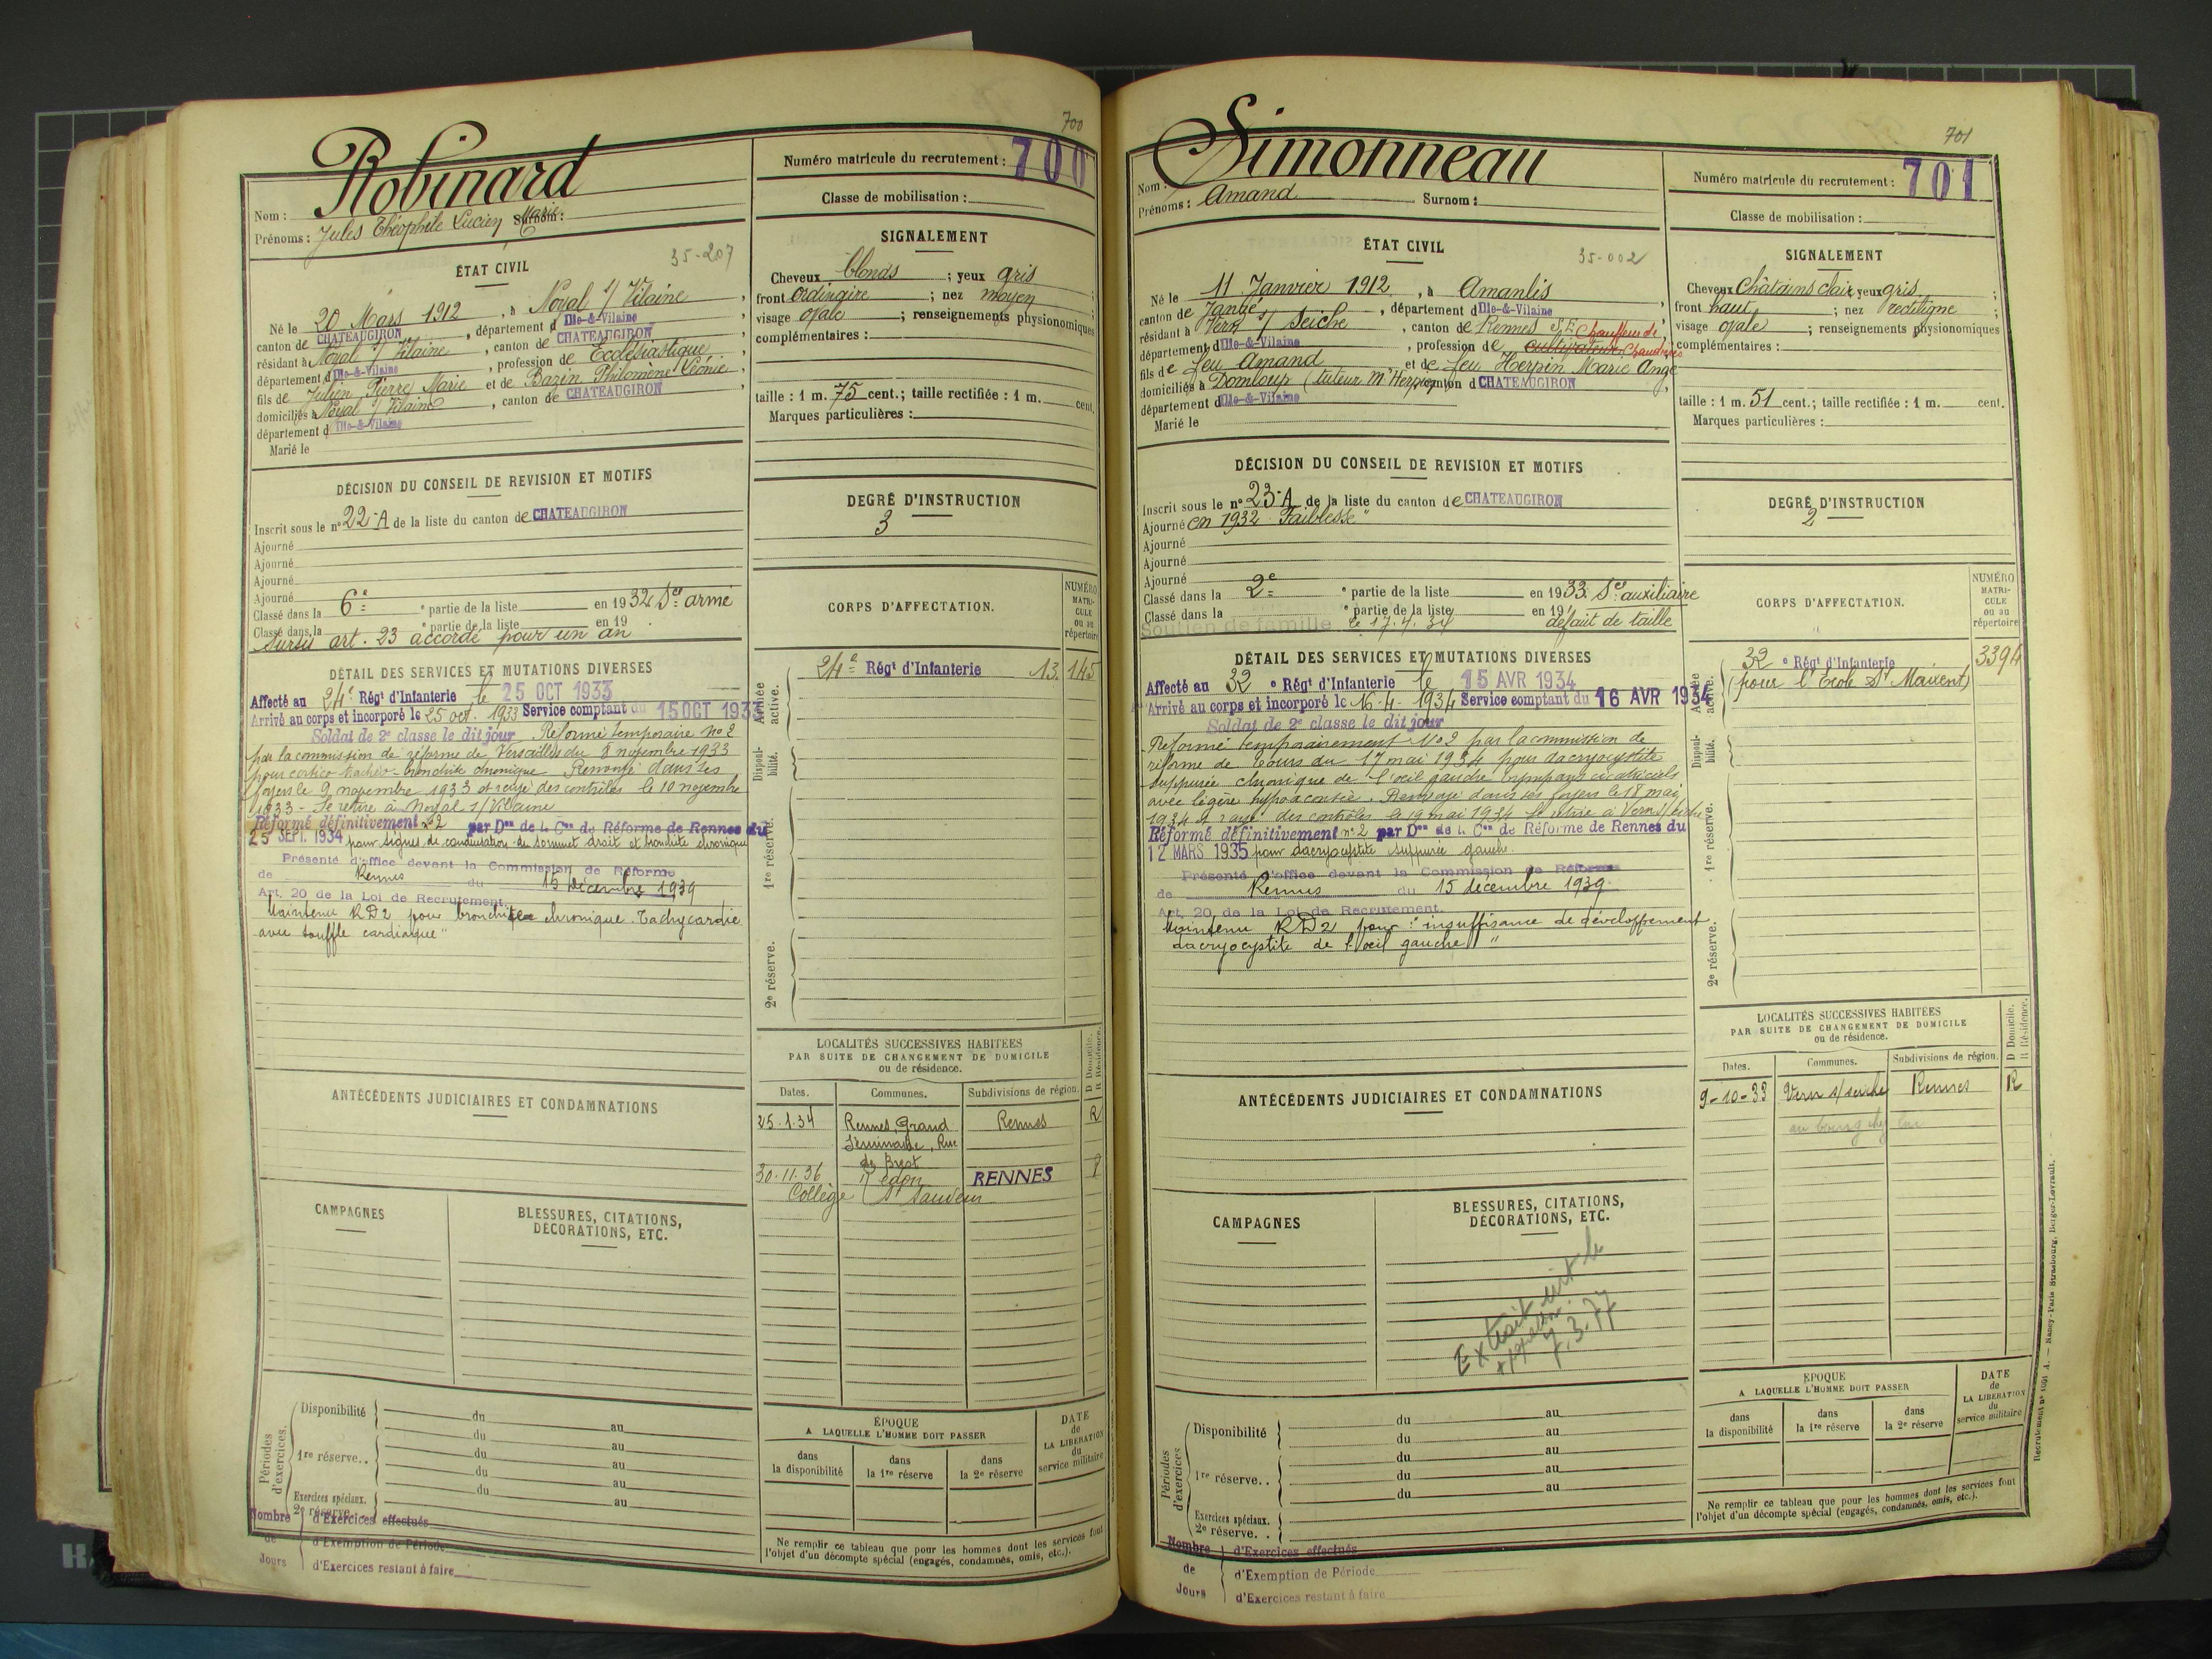 700
Robinard
Nom :
Prénoms : Jules Théophile Lucien Marie Surnom :
Numéro matricule du recrutement : 700
Classe de mobilisation :
ÉTAT CIVIL
35-207
Né le 20 Mars 1912, à Noyal s/ Vilaine,
canton de CHATEAUGIRON, département d Ille-&-Vilaine,
résidant à Noyal s/ Vilaine, canton de CHATEAUGIRON,
département d Ille-&-Vilaine, profession de Ecclésiastique,
fils de Julien Pierre Marie et de Bazin Philomène Léonie,
domiciliés à Noyal s/ Vilaine, canton de CHATEAUGIRON,
département d Ille-&-Vilaine
Marié le
SIGNALEMENT
Cheveux blonds ; yeux gris ;
front ordinaire ; nez moyen ;
visage ovale ; renseignements physionomiques
complémentaires :
taille : 1 m. 75 cent.; taille rectifiée : 1 m. cent.
Marques particulières :
DÉCISION DU CONSEIL DE REVISION ET MOTIFS
Inscrit sous le n° 22-A de la liste du canton de CHATEAUGIRON
Ajourné
Ajourné
Ajourné
Ajourné
Classé dans la 6e ° partie de la liste en 1932 Sce armé
Classé dans la ° partie de la liste en 19
Sursis art. 23 accordé pour un an
DEGRÉ D'INSTRUCTION
3
DÉTAIL DES SERVICES ET MUTATIONS DIVERSES
Affecté au 24e Régt d'Infanterie le 25 OCT 1933
Arrivé au corps et incorporé le 25 oct. 1933 Service comptant du 15 OCT 1933
Soldat de 2e classe le dit jour Réformé temporaire no 2
par la commission de réforme de Versailles du 8 novembre 1933
pour cortico trachéo-bronchite chronique Renvoyé dans ses
foyers le 9 novembre 1933 et rayé des contrôles le 10 novembre
1933 - Se retire à Noyal s/ Vilaine
Réformé définitivement n°2 par Don de la Con de Réforme de Rennes du
25 SEPT. 1934 pour signes de condensation du sommet droit et bronchite chronique
Présenté d'office devant la Commission de Réforme
de Rennes du 15 Décembre 1939
Art. 20 de la Loi de Recrutement.
Maintenu RD2 pour bronchite chronique. Tachycardie
avec souffle cardiaque"
CORPS D'AFFECTATION.
NUMÉRO MATRICULE ou au répertoire
Armée active.
24e Régt d'Infanterie 13.145
Disponibilité.
1re réserve.
2e réserve.
LOCALITÉS SUCCESSIVES HABITÉES
PAR SUITE DE CHANGEMENT DE DOMICILE
ou de résidence.
D Domicile. R Résidence.
Dates. Communes. Subdivisions de région.
25.1.34 Rennes, Grand Rennes R
Séminaire, Rue
de Brest
30.11.36 Redon RENNES
Collège St Sauveur
ANTÉCÉDENTS JUDICIAIRES ET CONDAMNATIONS
CAMPAGNES
BLESSURES, CITATIONS,
DÉCORATIONS, ETC.
Périodes d'exercices.
Disponibilité du au
du au
1re réserve.. du au
du au
du au
Exercices spéciaux.
2e réserve..
Nombre de Jours
d'Exercices effectués
d'Exemption de Période
d'Exercices restant à faire
ÉPOQUE
A LAQUELLE L'HOMME DOIT PASSER
dans la disponibilité
dans la 1re réserve
dans la 2e réserve
DATE de LA LIBÉRATION du service militaire
Ne remplir ce tableau que pour les hommes dont les services font
l'objet d'un décompte spécial (engagés, condamnés, omis, etc.).
701
Simonneau
Nom :
Prénoms : Amand Surnom :
Numéro matricule du recrutement : 701
Classe de mobilisation :
ÉTAT CIVIL
35-002
Né le 11 Janvier 1912, à Amanlis,
canton de Janzé, département d Ille-&-Vilaine,
résidant à Vern s/ Seiche, canton de Rennes S.E. Chauffeur de
département d Ille-&-Vilaine, profession de cultivateur Chaudières
fils de feu Amand et de feu Herpin Marie Ange
domiciliés à Domloup (tuteur Mr Herpin) canton d CHATEAUGIRON
département d Ille-&-Vilaine
Marié le
SIGNALEMENT
Cheveux Châtains clair yeux gris ;
front haut ; nez rectiligne ;
visage ovale ; renseignements physionomiques
complémentaires :
taille : 1 m. 51 cent.; taille rectifiée : 1 m. cent.
Marques particulières :
DÉCISION DU CONSEIL DE REVISION ET MOTIFS
Inscrit sous le n° 23-A de la liste du canton de CHATEAUGIRON
Ajourné en 1932 "Faiblesse"
Ajourné
Ajourné
Ajourné
Classé dans la 2e ° partie de la liste en 1933. Sce auxiliaire
Classé dans la ° partie de la liste en 19 défaut de taille
Soutien de famille le 17.4.34
DEGRÉ D'INSTRUCTION
2
DÉTAIL DES SERVICES ET MUTATIONS DIVERSES
Affecté au 32 ° Régt d'Infanterie le 15 AVR 1934
Arrivé au corps et incorporé le 16-4-1934 Service comptant du 16 AVR 1934
Soldat de 2e classe le dit jour
Réformé temporairement No 2 par la commission de
réforme de Tours du 17 mai 1934 pour dacryocystite
suppurée chronique de l'œil gauche tympans cicatriciels
avec légère hypoacousie. Renvoyé dans ses foyers le 18 mai
1934 et rayé des contrôles le 19 mai 1934 Se retire à Vern s/ seiche
Réformé définitivement n° 2 par Don de la Con de Réforme de Rennes du
12 MARS 1935 pour dacryocystite suppurée gauche.
Présenté d'office devant la Commission de Réforme
de Rennes du 15 décembre 1939.
Art. 20 de la Loi de Recrutement.
Maintenu RD2 pour : "insuffisance de développement
dacryocystite de l'œil gauche"
CORPS D'AFFECTATION.
NUMÉRO MATRICULE ou au répertoire
Armée active.
32 ° Régt d'Infanterie 3394
(pour l'Ecole St Maixent)
Disponibilité.
1re réserve.
2e réserve.
LOCALITÉS SUCCESSIVES HABITÉES
PAR SUITE DE CHANGEMENT DE DOMICILE
ou de résidence.
D Domicile. R Résidence.
Dates. Communes. Subdivisions de région.
9-10-33 Vern s/ seiche Rennes R
au bourg chez lui
ANTÉCÉDENTS JUDICIAIRES ET CONDAMNATIONS
CAMPAGNES
BLESSURES, CITATIONS,
DÉCORATIONS, ETC.
Extrait le
3.77
Périodes d'exercices
Disponibilité du au
du au
1re réserve.. du au
du au
du au
Exercices spéciaux.
2e réserve..
Nombre de Jours
d'Exercices effectués
d'Exemption de Période
d'Exercices restant à faire
ÉPOQUE
A LAQUELLE L'HOMME DOIT PASSER
dans la disponibilité
dans la 1re réserve
dans la 2e réserve
DATE de LA LIBÉRATION du service militaire
Ne remplir ce tableau que pour les hommes dont les services font
l'objet d'un décompte spécial (engagés, condamnés, omis, etc.).
Nancy-Paris-Strasbourg, Berger-Levrault.